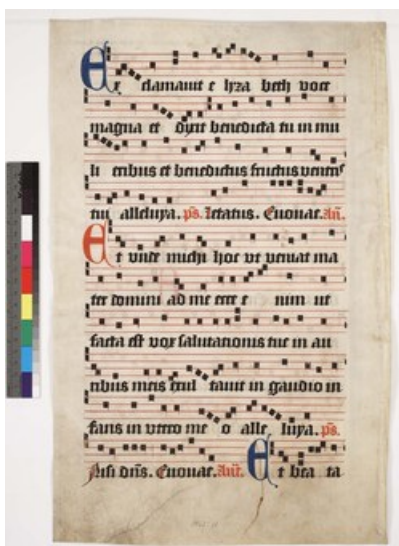 Ex clamavit e lyza beth voce
magna et dixit benedicta tu in mu
li eribus et benedictus fructus ventris
tui alleluya. ps. letatus. Euouae. An.
Et unde michi hoc ut veniat ma
ter domini ad me ecce e nim ut
facta est vox salutationis tue in au
ribus meis exul tavit in gaudio in
fans in utero me o alle luya. ps.
Nisi dns. Euouae. Ant. Et bea ta